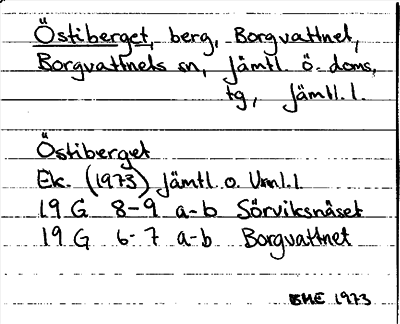 Östiberget, berg, Borgvattnet,
Borgvattnets sn, Jämtl. ö. doms.
tg, Jämtl. l.
Östiberget
Ek. (1973) Jämtl. o. Vml. l.
19 G 8-9 a-b Sörviksnäset
19 G 6-7 a-b Borgvattnet
BME 1973